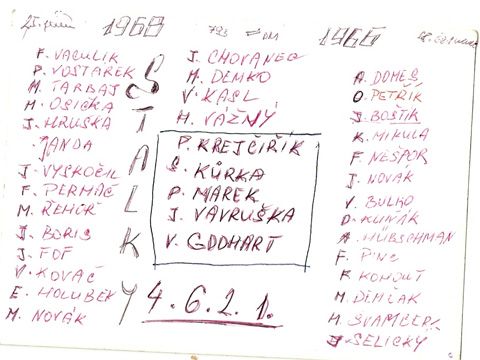 1968
F. VACULIK
P. VOSTAREK
M. TARBAJ
M. OSICKA
J. HRUŠKA
JANDA
J. VYSKOČIL
F. PERMÁČ
M. ŘEHIŘ
J. BORIS
J. FOF
V. KOVAČ
E. HOLUBEK
M. NOVÁK
STALKY
J. CHOVANEC
M. DEMKO
V. KASL
H. VÁŽNÝ
P. KREJČIŘÍK
S. KŮRKA
P. MAREK
J. VAVRUŠKA
V. GODHART
4. 6. 2. 1.
1966
A. DOMEŠ
O. PETŘÍK
J. BOŠTIK
K. MIKULA
F. NEŠPOR
J. NOVAK
V. BULKO
D. KUNÁK
A. HÜBSCHMAN
F. PINC
F. KOHOUT
M. DIMČAK
M. SVAMBERG
J. SELICKÝ